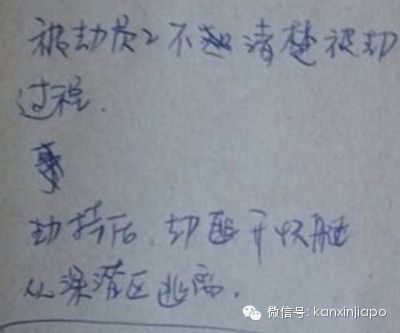 被劫员工不清楚被劫
过程.
劫持后,劫匪开快艇
从深湾区逃离.
微信号: kanxinjiapo